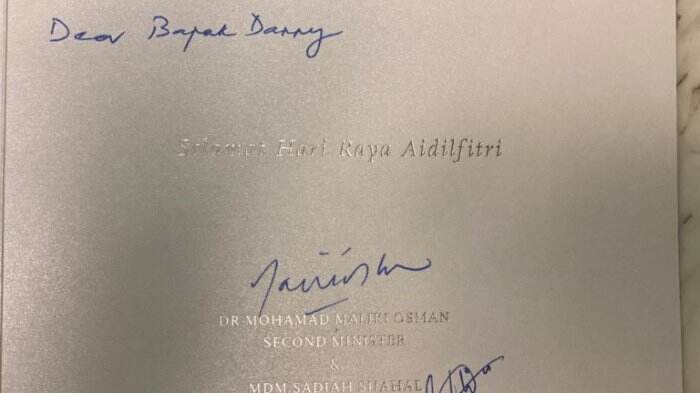 Dear Bapak Danny
Selamat Hari Raya Aidilfitri
DR MOHAMAD MALIKI OSMAN
SECOND MINISTER
&
MDM SADIAH SHAHAL